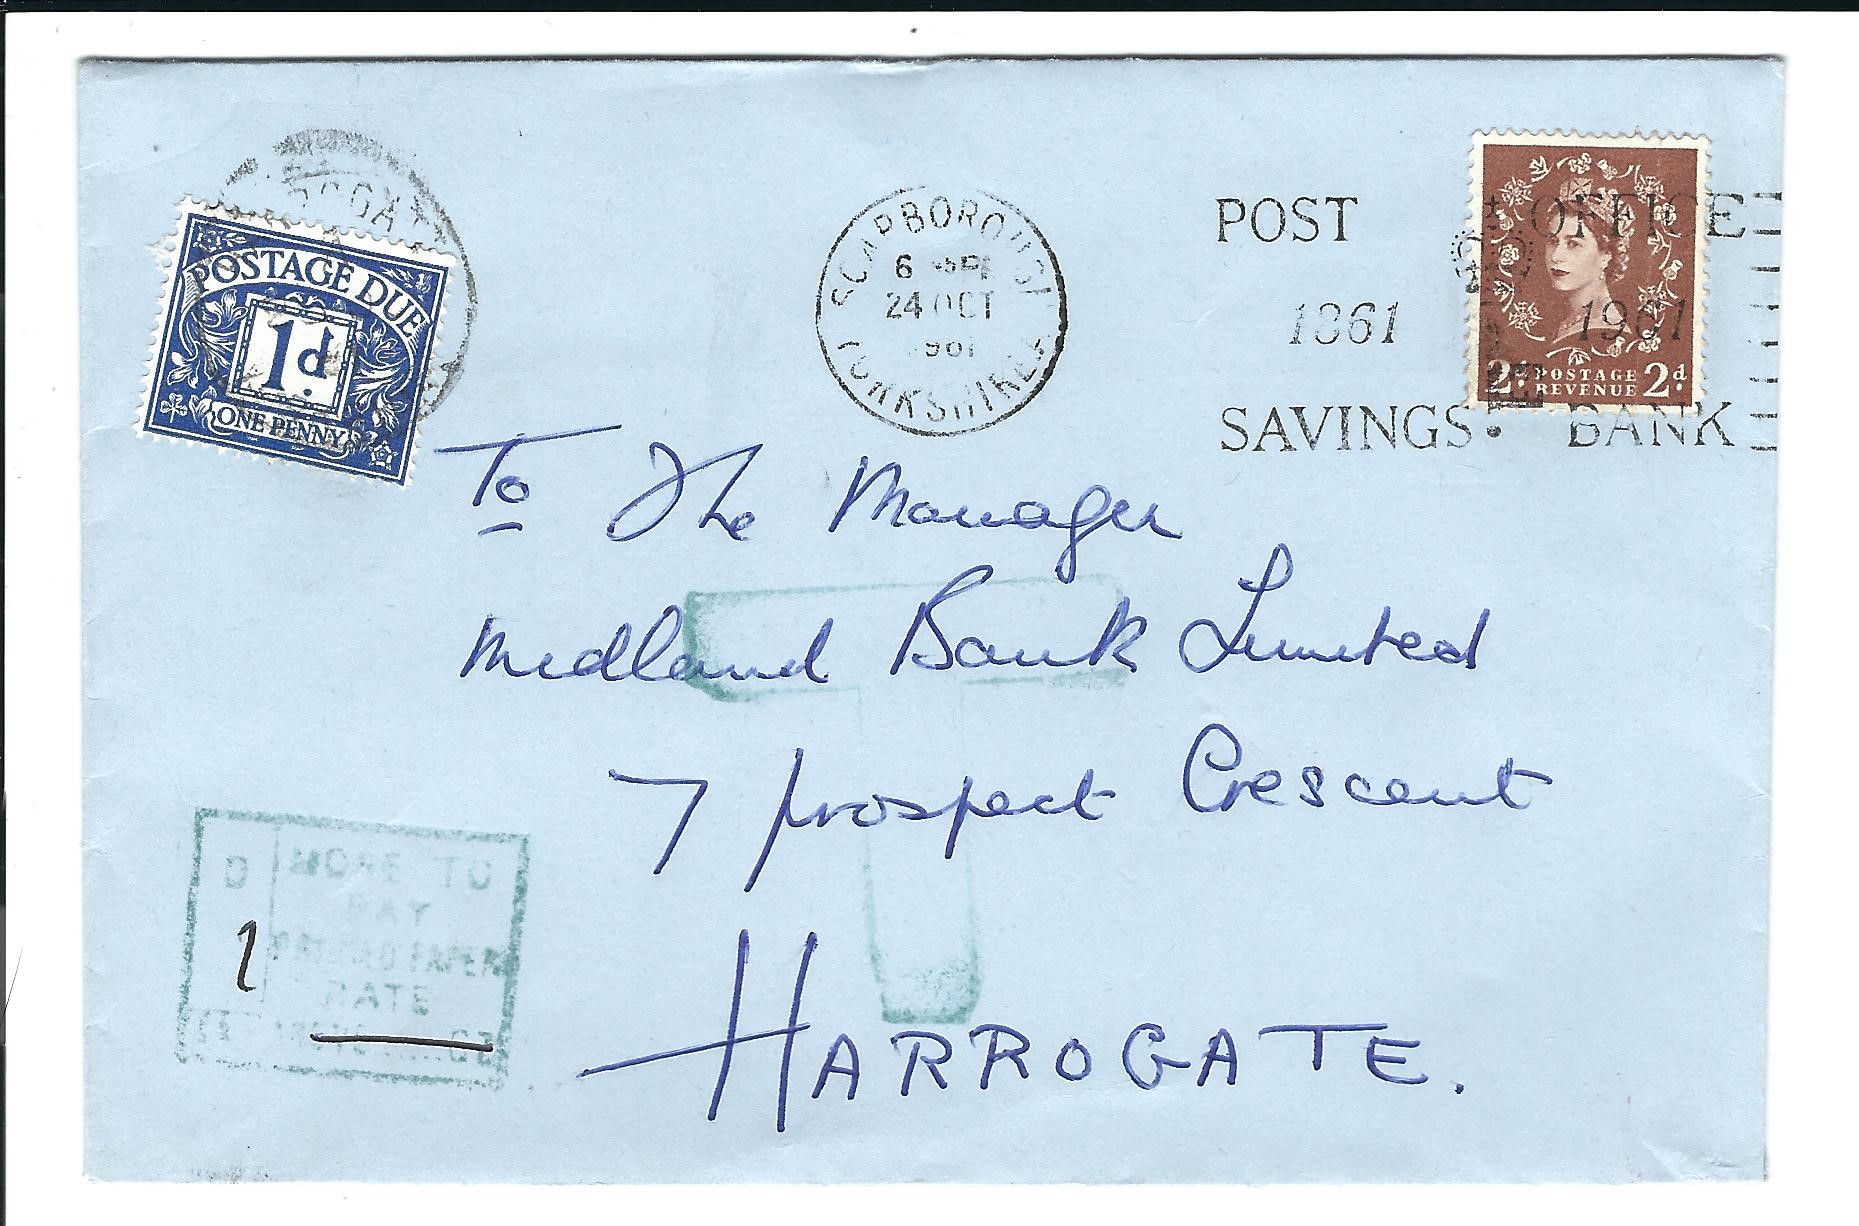 POSTAGE DUE
1d.
ONE PENNY
SCARBOROUGH
6
24 OCT
1961
YORKSHIRE
POST OFFICE
1861 1961
SAVINGS BANK
2d. POSTAGE 2d.
REVENUE
To The Manager
Midland Bank Limited
7 Prospect Crescent
HARROGATE.
T
D MORE TO
PAY
1 PRINTED PAPER
RATE